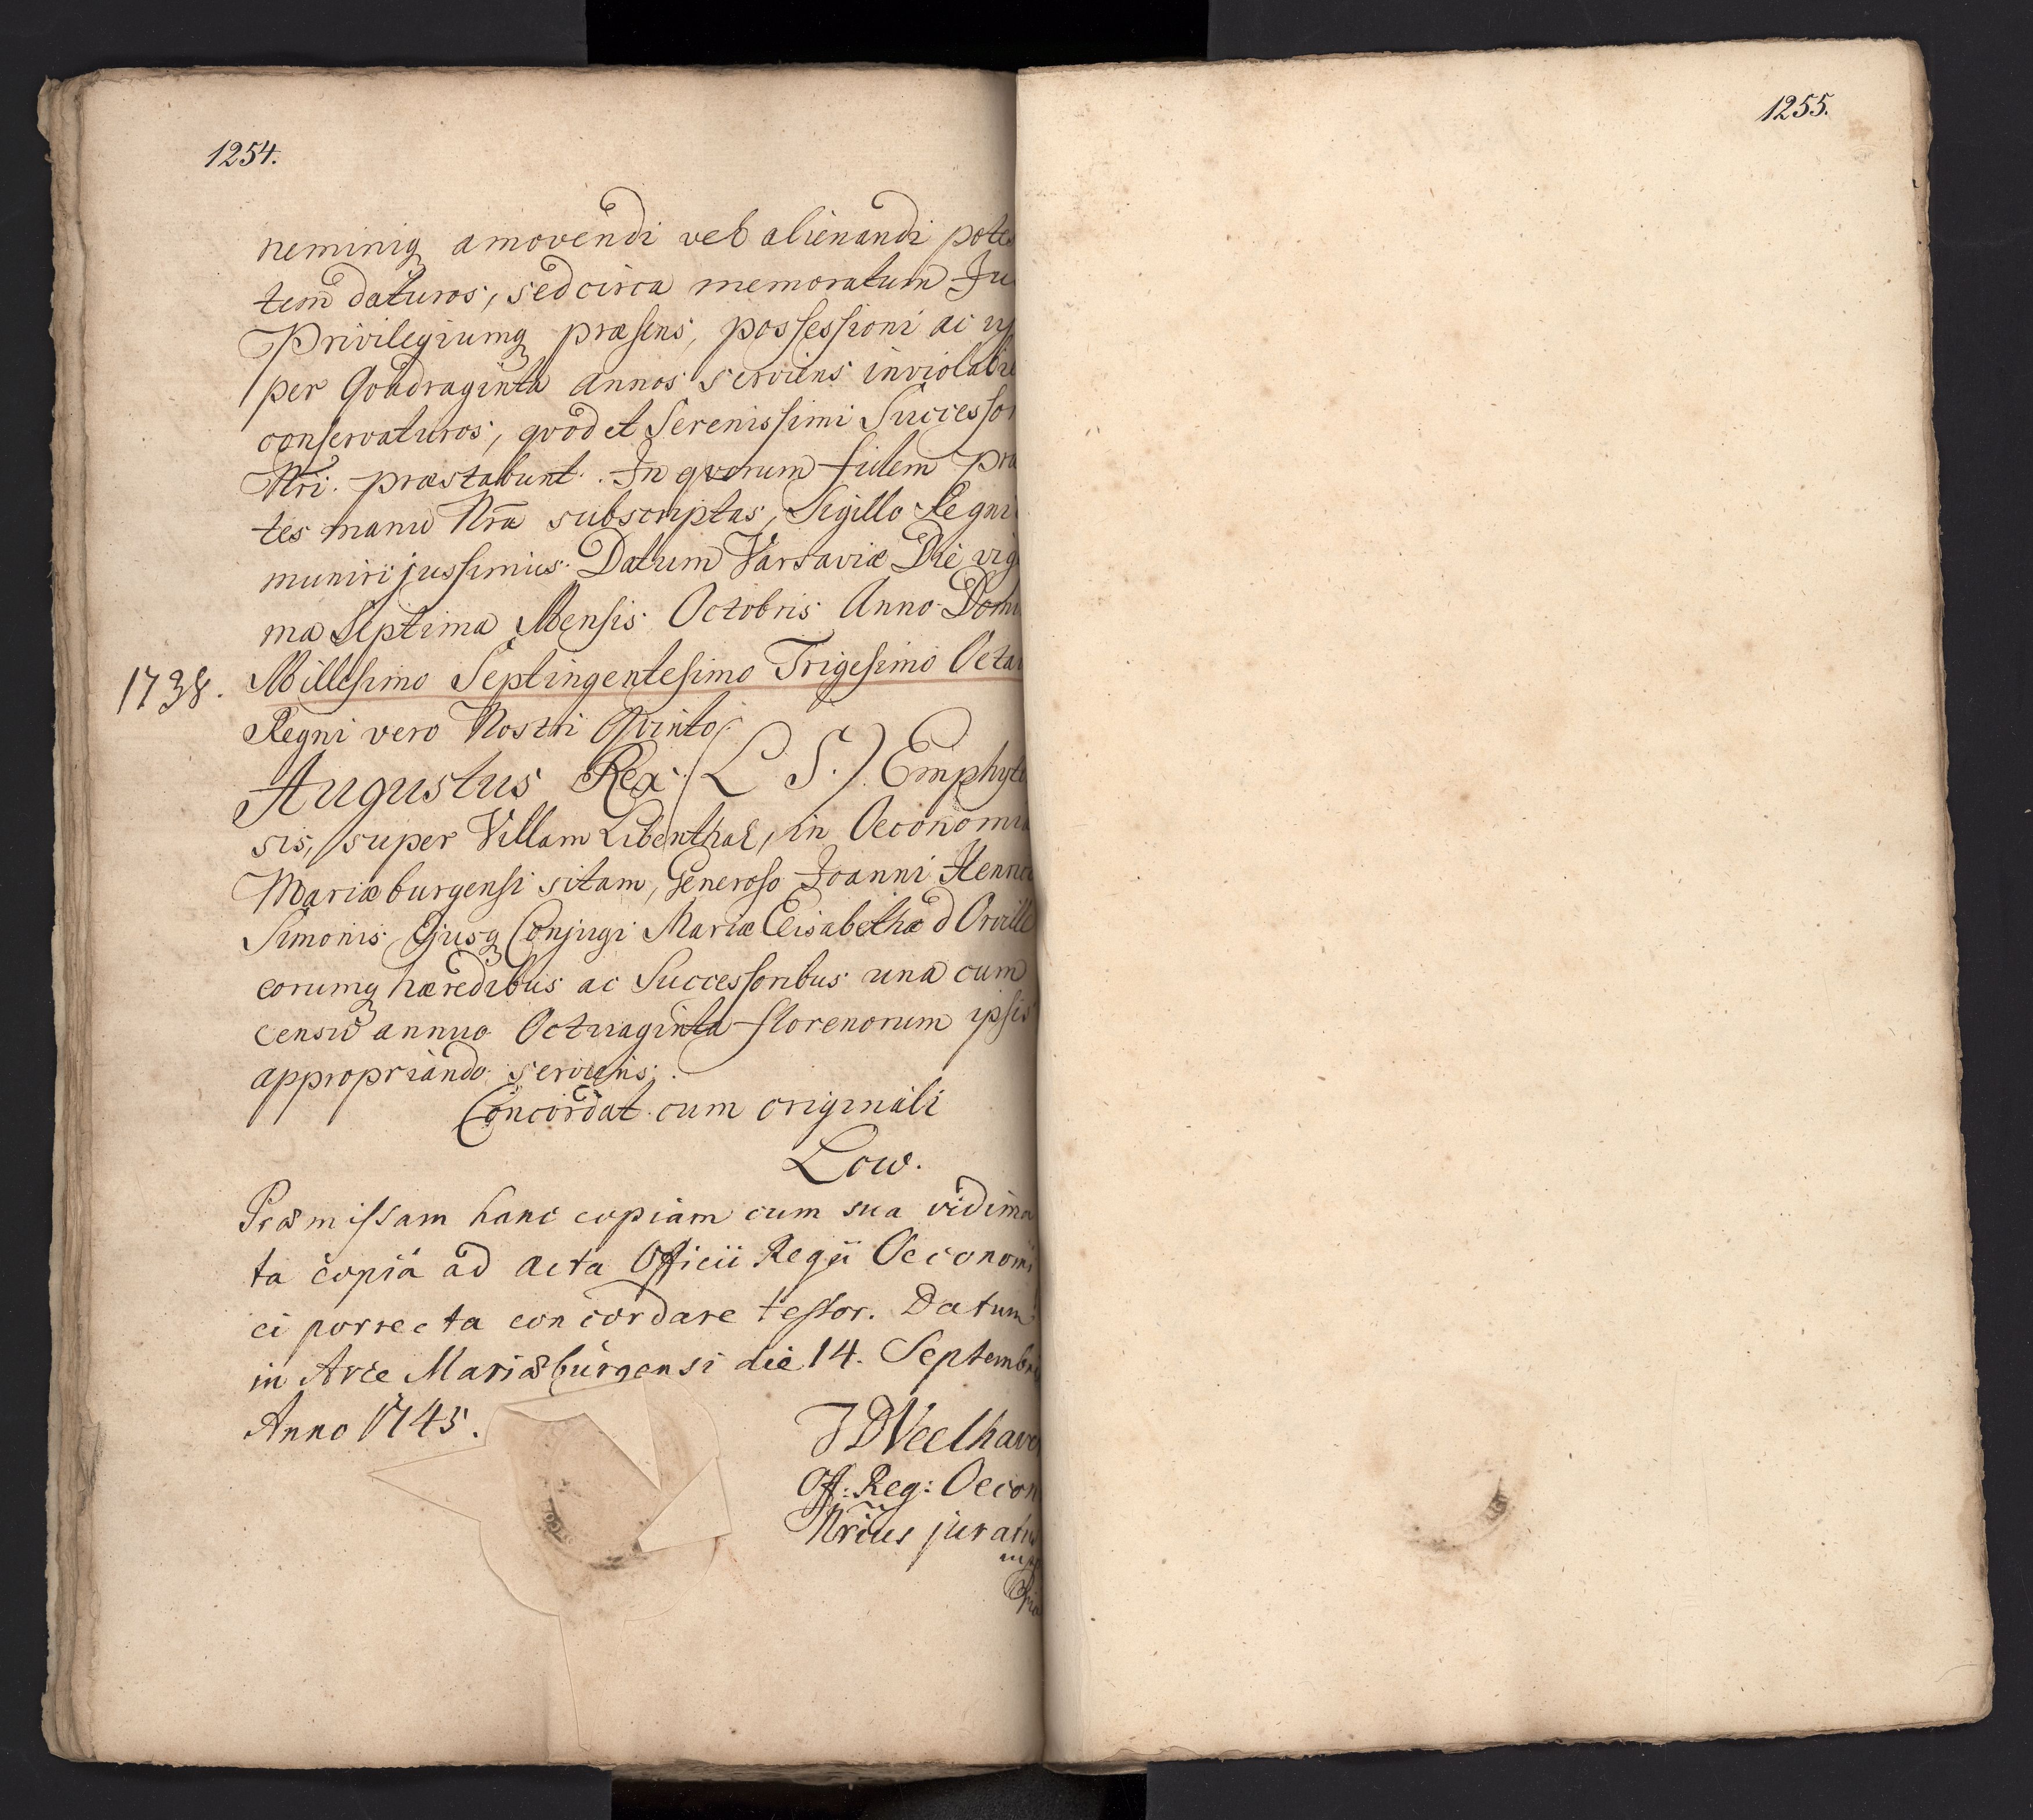 1254.
neminiq amovendi vel alienandi potes
tem daturos, sed circa memoratum Ju
Privilegiumq præsens, possessioni ac us
per Qvadraginta annos serviens inviolabil
conservaturos, qvod et Serenissimi Successor
Nri. præstabunt. In qvorum fidem præ
tes manu Nrã subscriptas, Sigillo Regni
muniri jussimus. Datum Varsaviæ Die vige
ma Septima Mensis Octobris Anno Domi
1738. Millesimo Septingentesimo Trigesimo Octav
Regni vero Nostri Qvinto.
Augustus Rex. (L S.) Emphyte
sis, super Villam Libenthal, in Oeconomia
Mariæburgensi sitam, Generoso Joanni Henrico
Simonis Ejusq Conjugi Mariæ Elisabethæ d Orville
eorumq hæredibus ac Successoribus una cum
censu annuo Octuaginta florenorum ipsis
appropriando serviens.
Concordat cum originali
Low.
Præmissam hanc copiam cum sua vidima
ta copiâ ad acta Officii Regii Oeconomi
ci porrecta concordare testor. Datum
in Arce Mariæburgensi die 14. Septembris
Anno 1745.
JDVeelhaver
Off: Reg: Oecon
Nrius juratus
mp
1255.